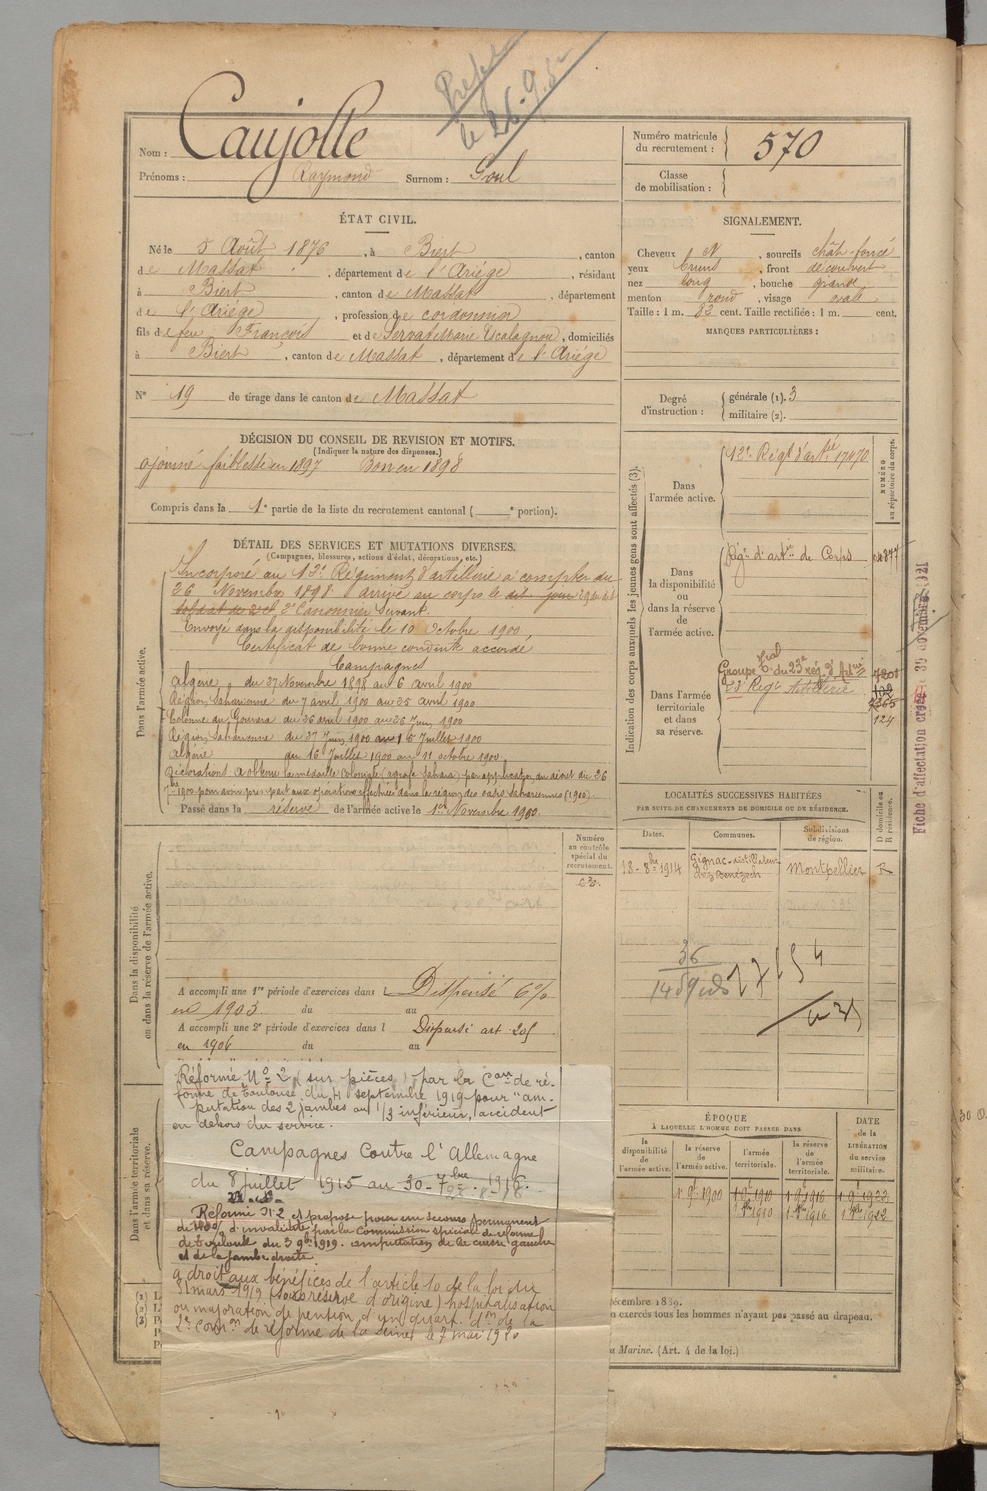 Nom : Caujolle
Prénoms : Raymond Surnom : Goul
Numéro matricule du recrutement : 570
Classe de mobilisation :
ÉTAT CIVIL.
Né le 5 Août 1876, à Biert, canton
de Massat, département de l'Ariége, résidant
à Biert, canton de Massat, département
de l'Ariége, profession de cordonnier
fils de feu François et de Servat Marie Escalagnou, domiciliés
à Biert, canton de Massat, département de l'Ariége
N° 19 de tirage dans le canton de Massat
SIGNALEMENT.
Cheveux N, sourcils chât-foncé
yeux bruns, front découvert
nez long, bouche grande
menton rond, visage ovale
Taille : 1 m. 82 cent. Taille rectifiée : 1 m. cent.
MARQUES PARTICULIÈRES :
Degré d'instruction : générale (1). 3
militaire (2).
DÉCISION DU CONSEIL DE REVISION ET MOTIFS.
(Indiquer la nature des dispenses.)
ajourné faiblesse en 1897 Bon en 1898
Compris dans la 1e partie de la liste du recrutement cantonal ( e portion).
DÉTAIL DES SERVICES ET MUTATIONS DIVERSES.
(Campagnes, blessures, actions d'éclat, décorations, etc.)
Dans l'armée active.
Incorporé au 12e Régiment d'artillerie à compter du
26 Novembre 1898 arrivé au corps le dit jour
soldat de 2e cl 2e Canonnier Servant.
Envoyé dans la disponibilité le 10 Octobre 1900
Certificat de bonne conduite accordé
Campagnes
Algérie du 27 Novembre 1898 au 6 avril 1900
Région Saharienne du 7 avril 1900 au 25 avril 1900
Colonne du Gourara du 26 avril 1900 au 26 Juin 1900
Région Saharienne du 27 Juin 1900 au 15 Juillet 1900
Algérie du 16 Juillet 1900 au 11 octobre 1900
Décorations A obtenu la médaille Coloniale (agrafe Sahara) par application du décret du 26
1900 pour avoir pris part aux opérations effectuées dans la région des oasis Sahariennes (1900).
Passé dans la réserve de l'armée active le 1er Novembre 1900.
Indication des corps auxquels les jeunes gens sont affectés (3).
NUMÉRO au répertoire du corps.
Dans l'armée active.
12e Régt d'artie 17470
Dans la disponibilité ou dans la réserve de l'armée active.
Régt d'artie de Corps
Dans l'armée territoriale et dans sa réserve.
Groupe Tial du 23e rég. d'Artie
23e Régt Artillerie
124
Fiche d'affectation créée le 30 novembre 1921
LOCALITÉS SUCCESSIVES HABITÉES
PAR SUITE DE CHANGEMENTS DE DOMICILE OU DE RÉSIDENCE.
Dates. Communes. Subdivisions de région. D domicile ou R résidence.
18-8bre 1914 Gignac Montpellier R
Dans la disponibilité ou dans la réserve de l'armée active.
Numéro au contrôle spécial du recrutement.
A accompli une 1re période d'exercices dans l Dispensé 6%
en 1903 du au
A accompli une 2e période d'exercices dans l Dispensé art 205
en 1906 du au
Dans l'armée territoriale et dans sa réserve.
Réformé No 2 (sur pièces) par la Con de ré-
forme de Toulouse du 4 septembre 1919 pour "am-
putation des 2 jambes au 1/3 inférieur, accident
en dehors du service.
Campagnes Contre l'Allemagne
du 8 juillet 1915 au 30-7bre 1916.
Réformé N° 2 et proposé pour un secours permanent
de 100% d'invalidité par la Commission spéciale de réforme
de Toulouse du 3 9bre 1919. amputation de la cuisse gauche
et de la jambe droite.
a droit aux bénéfices de l'article 10 de la loi du
31 mars 1919 (sous réserve d'origine) hospitalisation
ou majoration de pension d'un quart. don de la
2e Comon de réforme de la Seine le 7 mai 1920
ÉPOQUE
À LAQUELLE L'HOMME DOIT PASSER DANS
la disponibilité de l'armée active. la réserve de l'armée active. l'armée territoriale. la réserve de l'armée territoriale.
DATE de la LIBÉRATION du service militaire.
1 9bre 1900 1 9bre 1910 1 9bre 1916 1 9bre 1922
décembre 1889.
n exercés tous les hommes n'ayant pas passé au drapeau.
a Marine. (Art. 4 de la loi.)